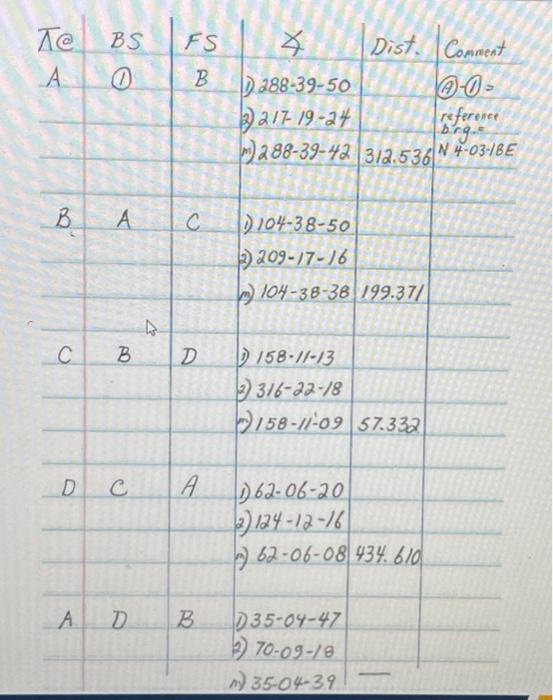 ⊼@ BS FS ∡ Dist. Comment
A ① B 1) 288-39-50 Ⓐ-①=
2) 217-19-24 reference
brg.=
m) 288-39-42 312.536 N 4-03-18E
B A C 1) 104-38-50
2) 209-17-16
m) 104-38-38 199.371
C B D 1) 158-11-13
2) 316-22-18
m) 158-11-09 57.332
D C A 1) 62-06-20
2) 124-12-16
m) 62-06-08 434.610
A D B 1) 35-04-47
2) 70-09-18
m) 35-04-39 —